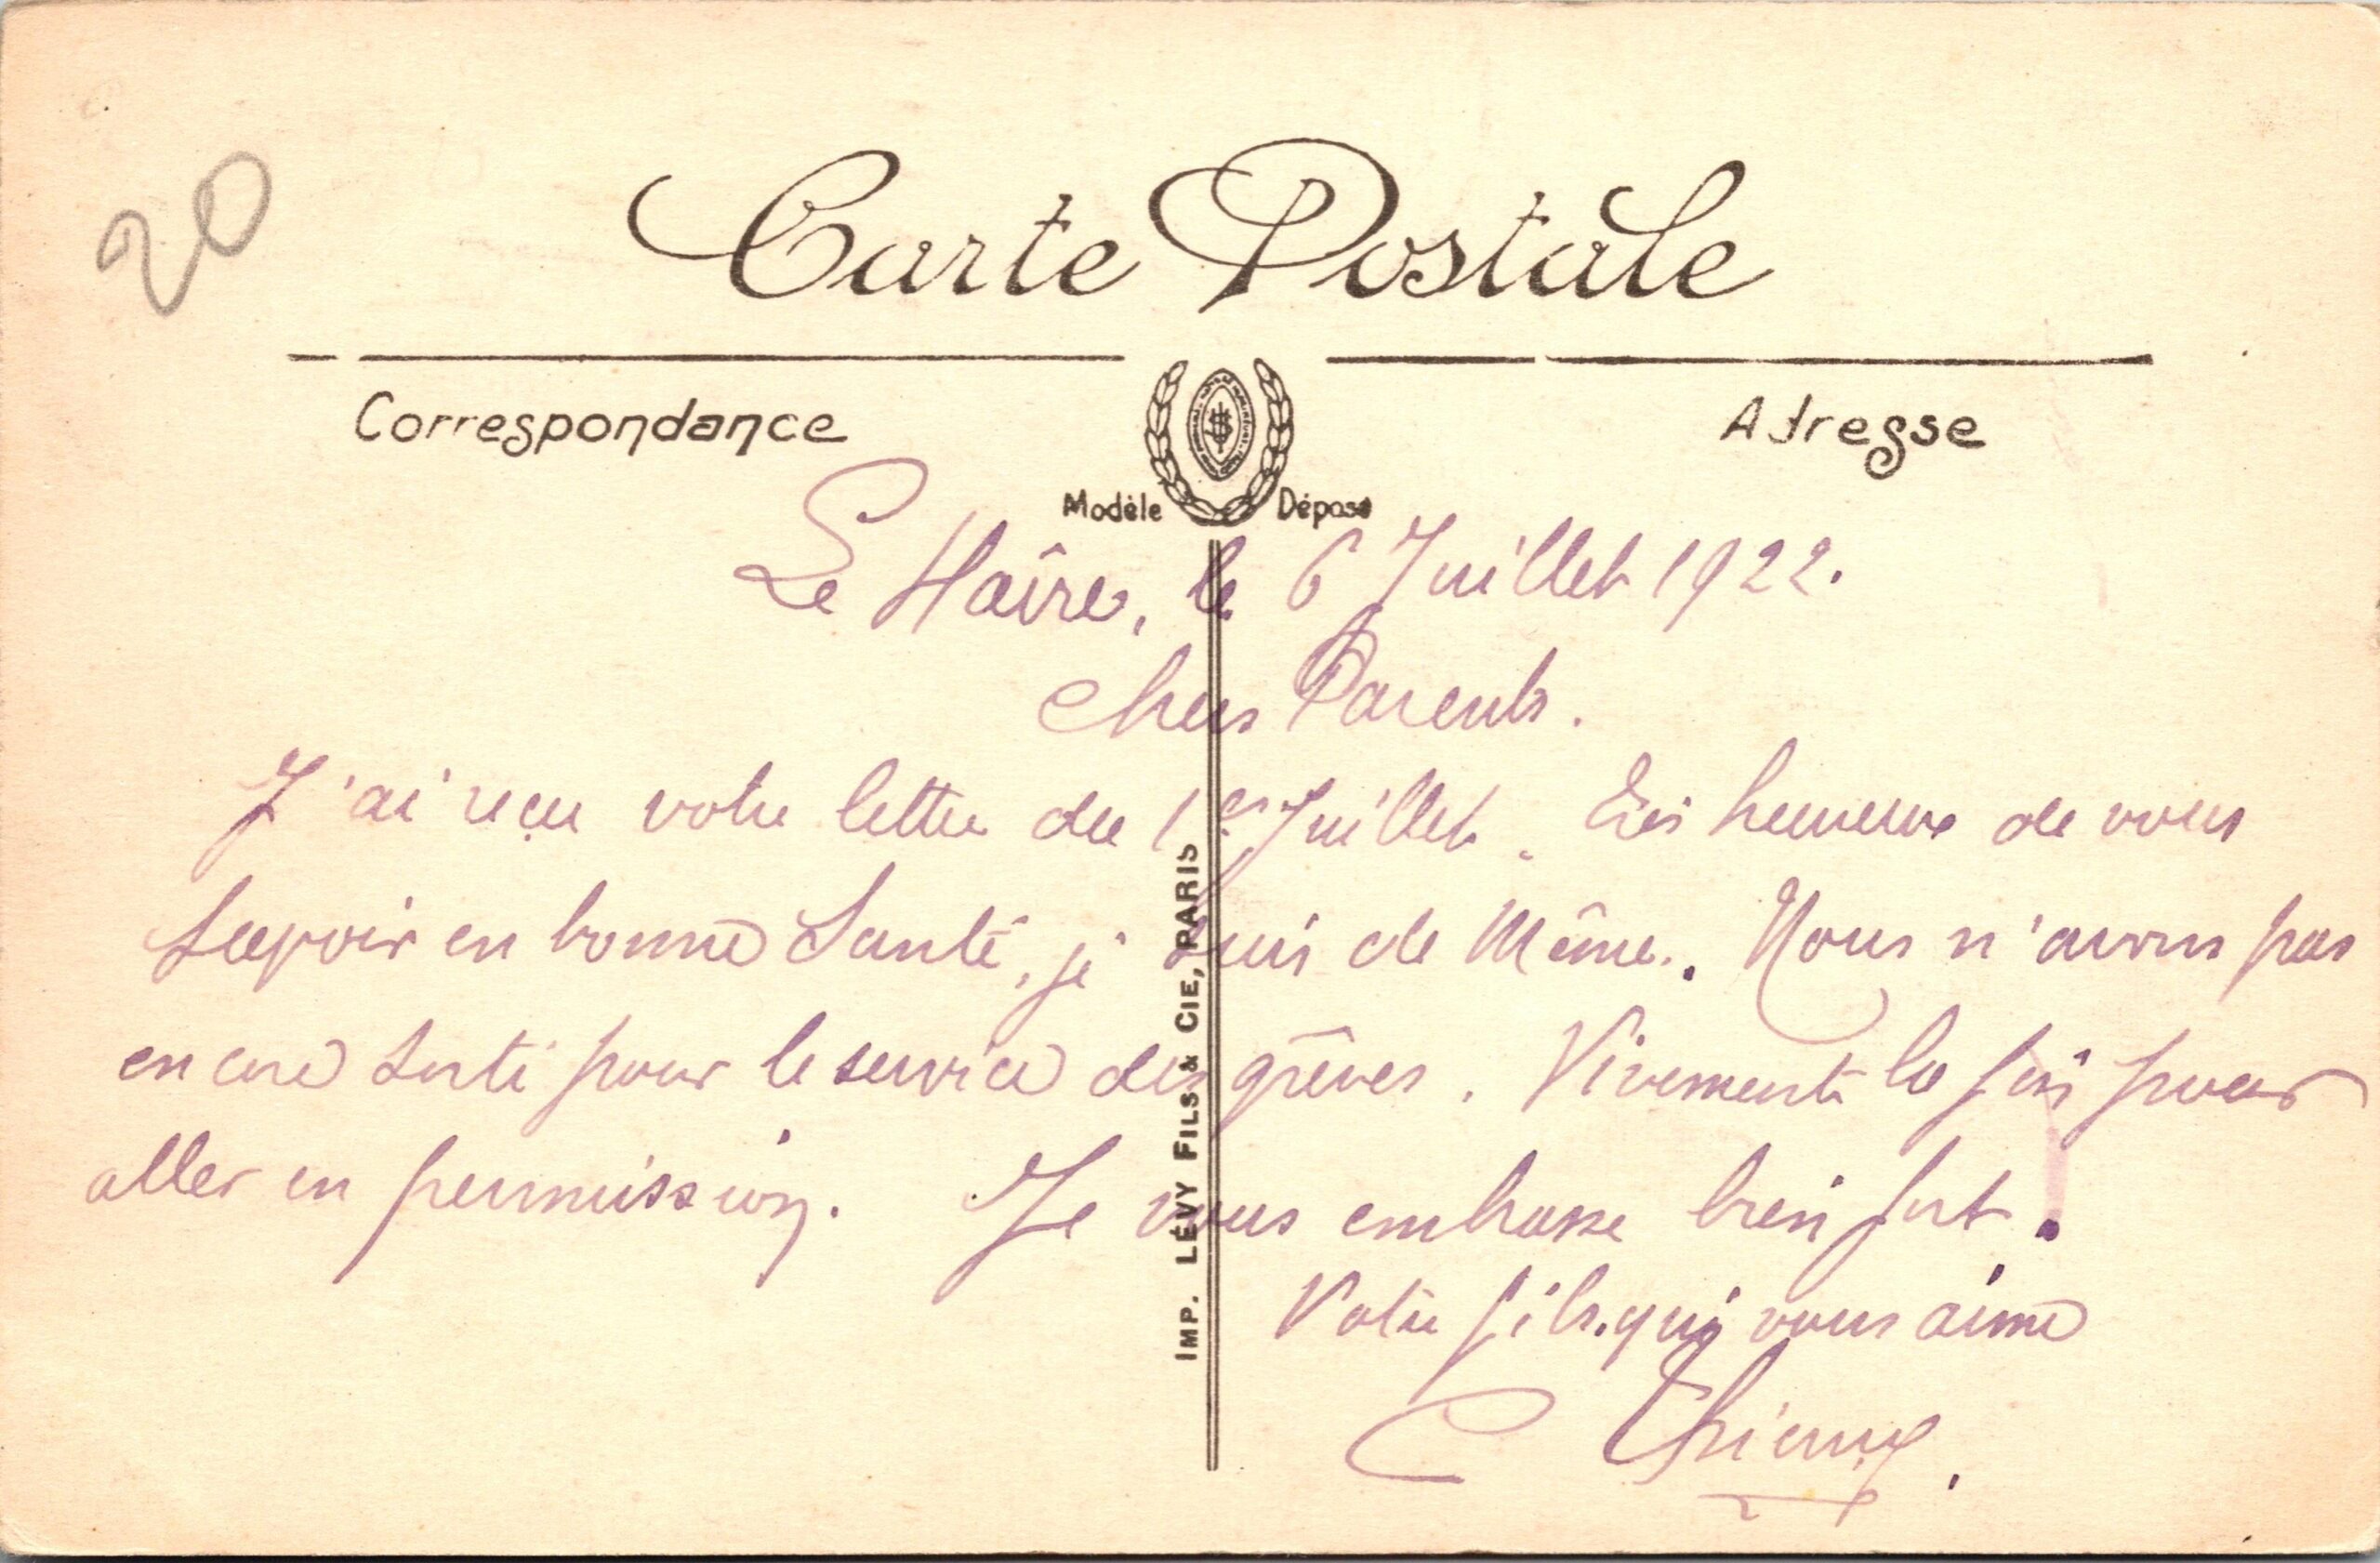 20
Carte Postale
Correspondance
Adresse
Modèle Déposé
Le Hâvre, le 6 Juillet 1922.
Chers Parents.
J'ai reçu votre lettre du 1er Juillet. Très heureux de vous
savoir en bonne Santé, je suis de Même. Nous n'avons pas
encore sorti pour le service des grèves. Vivement la fin pour
aller en permission. Je vous embrasse bien fort.
Votre fils qui vous aime
Thierry.
IMP. LÉVY FILS & CIE, PARIS